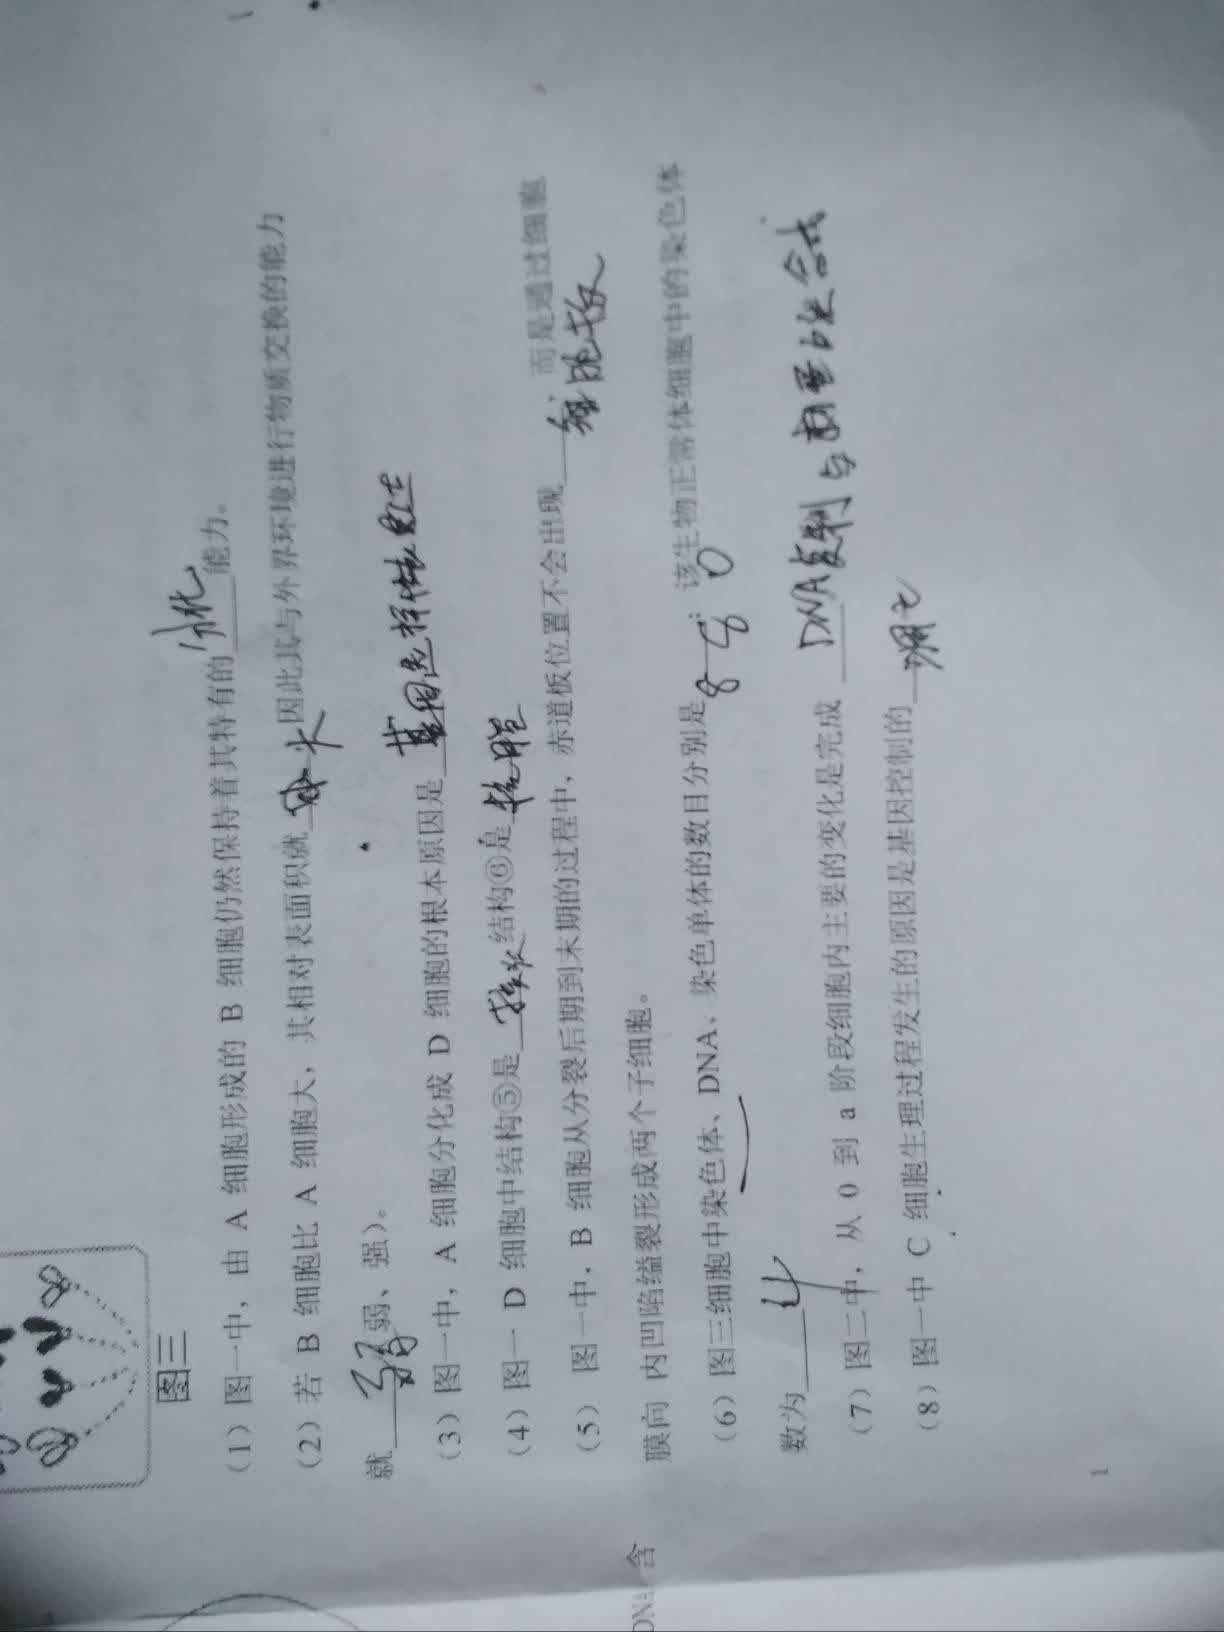 图三
（1）图一中，由 A 细胞形成的 B 细胞仍然保持着其特有的 分化 能力。
（2）若 B 细胞比 A 细胞大，其相对表面积就 小 因此其与外界环境进行物质交换的能力
就 弱 弱、强）。
（3）图一中，A 细胞分化成 D 细胞的根本原因是 基因选择性表达
（4）图一 D 细胞中结构⑤是 结构⑥是 核膜
（5）图一中，B 细胞从分裂后期到末期的过程中，赤道板位置不会出现 细胞板 而是通过细胞
膜向 内凹陷缢裂形成两个子细胞。
（6）图三细胞中染色体、DNA、染色单体的数目分别是 8 8 0 该生物正常体细胞中的染色体
数为 4
（7）图二中，从 0 到 a 阶段细胞内主要的变化是完成 DNA复制与蛋白质合成
（8）图一中 C 细胞生理过程发生的原因是基因控制的 凋亡
1
DNA 含